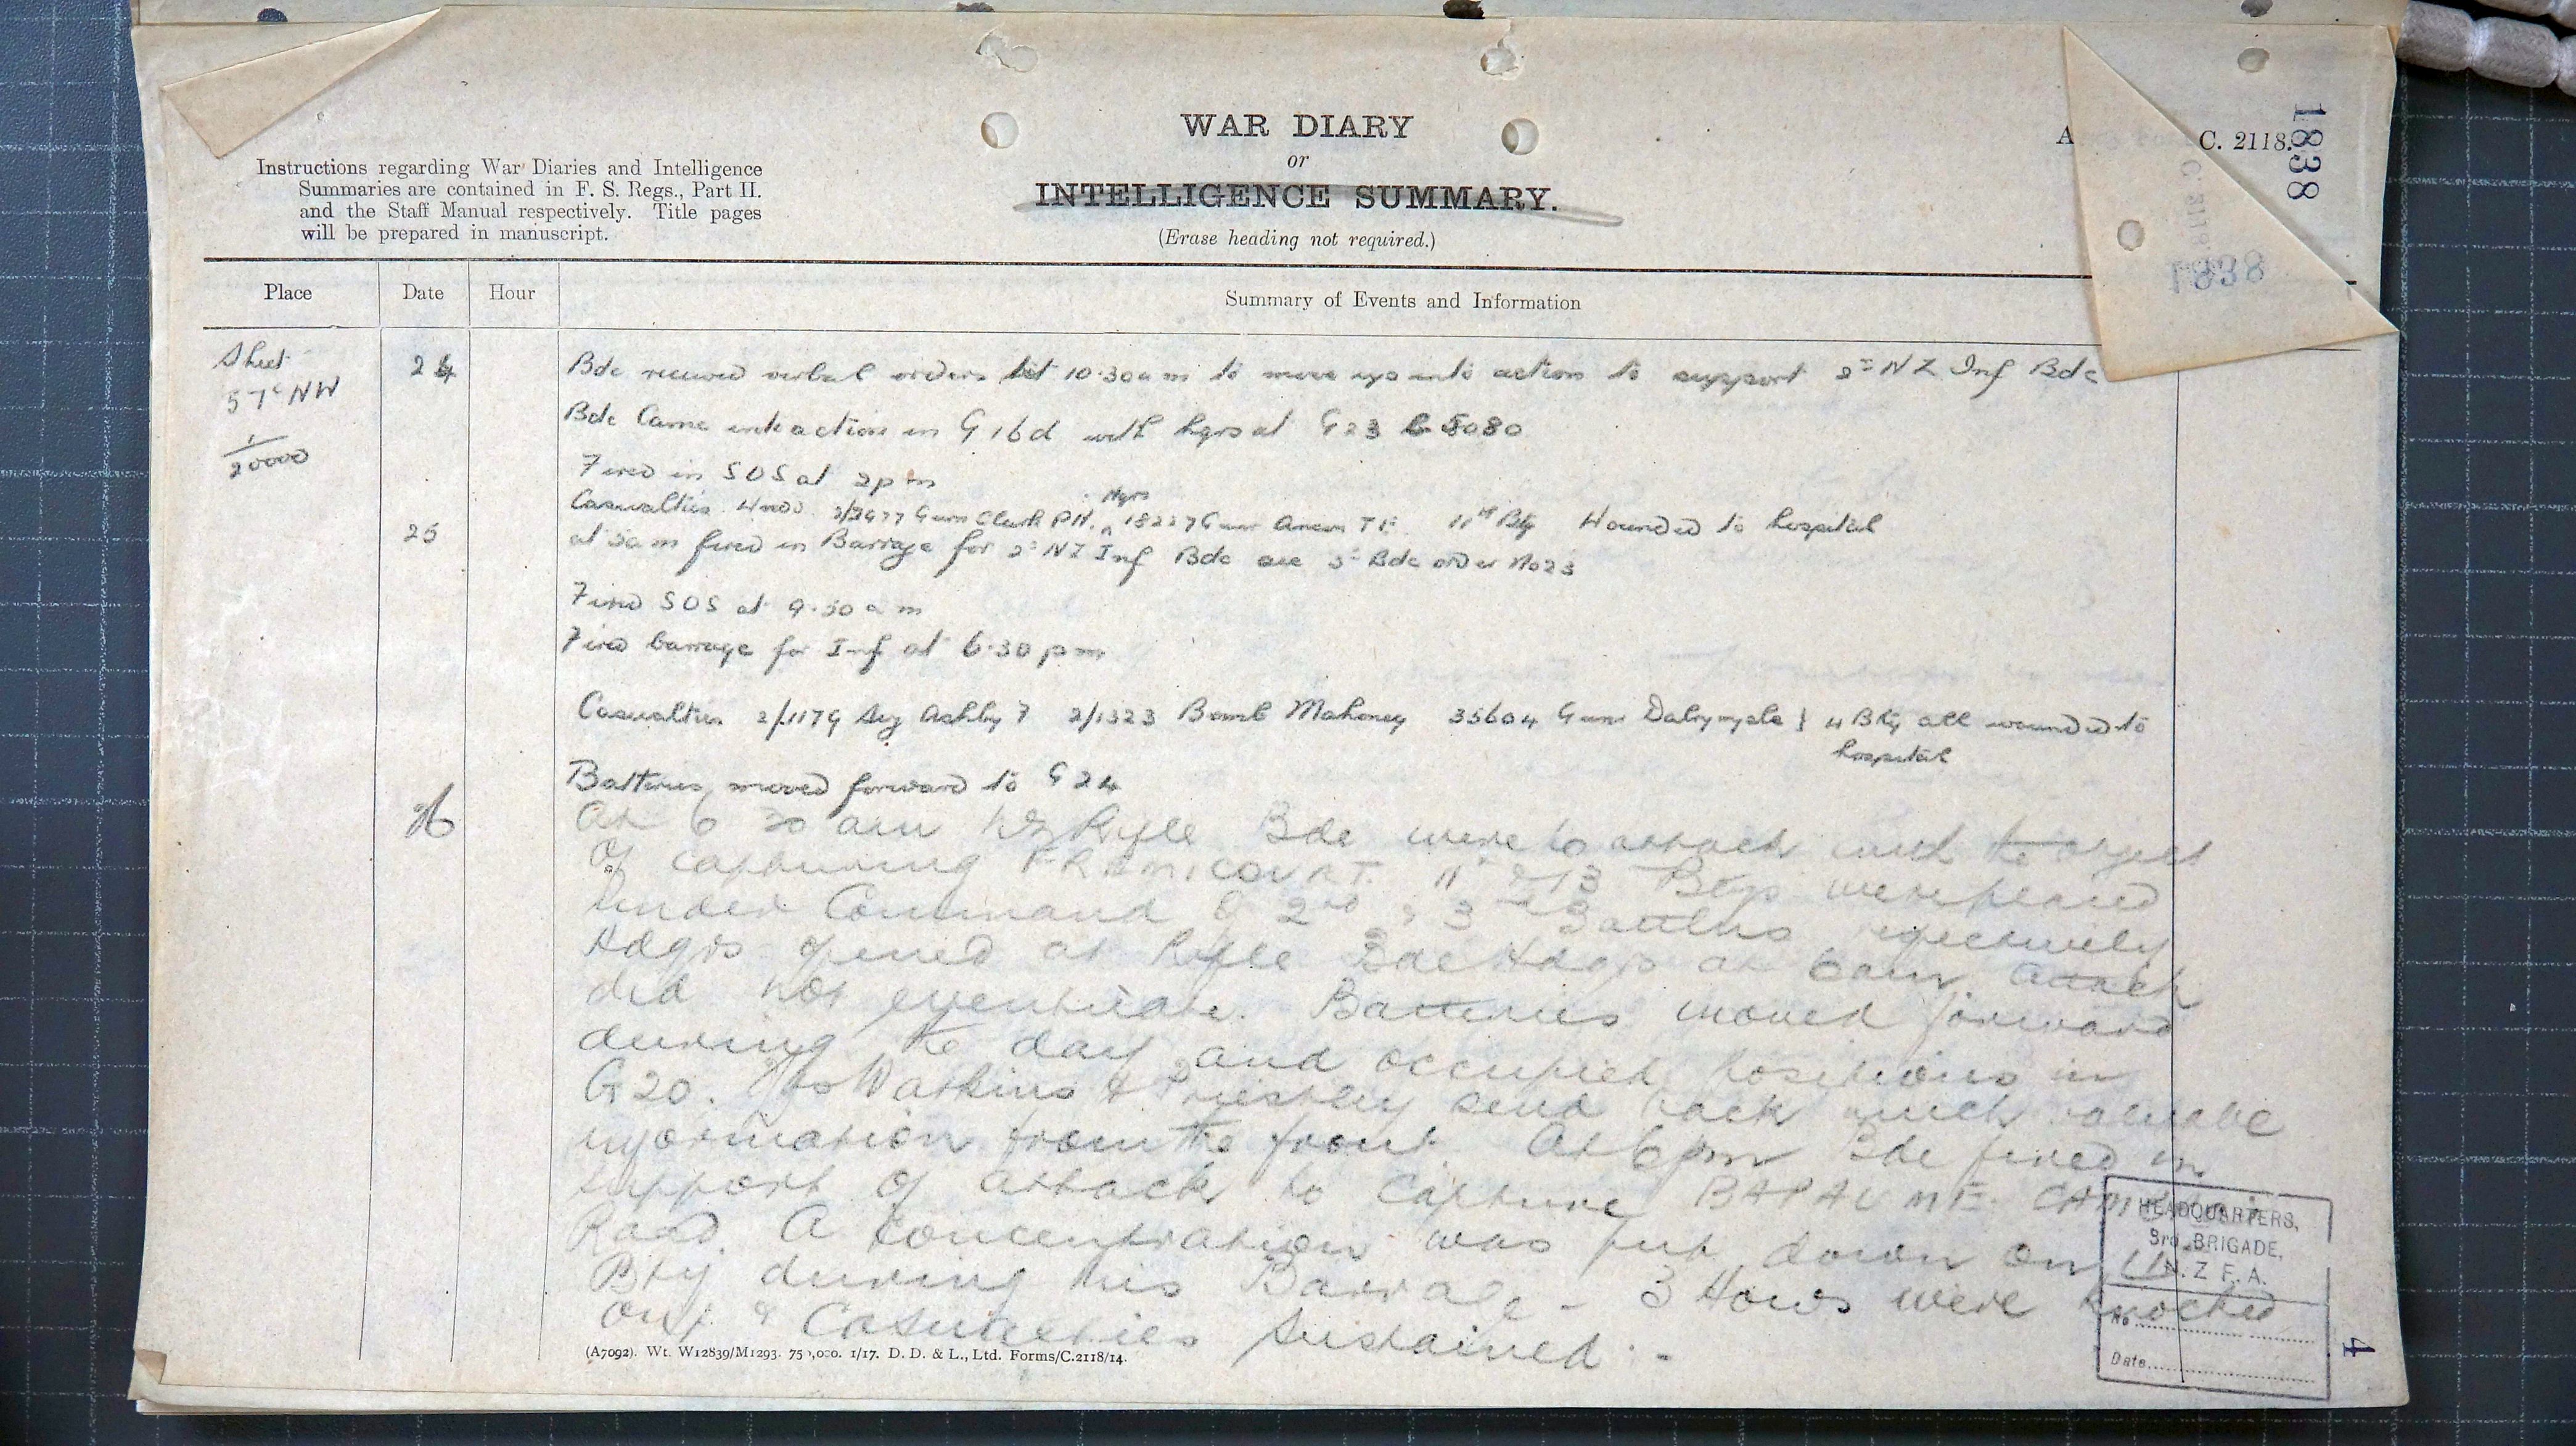 WAR DIARY
or
INTELLIGENCE SUMMARY.
(Erase heading not required.)
Instructions regarding War Diaries and Intelligence
Summaries are contained in F. S. Regs., Part II.
and the Staff Manual respectively. Title pages
will be prepared in manuscript.
A
C. 2118.
1838
Place
Date
Hour
Summary of Events and Information
Sheet
57c NW
1/20000
24
Bde received verbal orders at 10.30 am to move up into action to support 2nd NZ Inf Bde
Bde Came into action in G 16 d with hqrs at G 23 b 8080
Fired in SOS at 2 pm
Hqrs
Casualties 2/3477 Gunr Clark P.H. 18227 Gunr T F. 11th Bty Wounded to hospital
25
at 5am fired in Barrage for 2nd NZ Inf Bde see 3rd Bde order No 23
Fired SOS at 9.30 am
Fired barrage for Inf at 6.30 pm
Casualties 2/1179 Sig Ashby F 2/1323 Bomb Mahoney 35604 Gunr Dalrymple } 4 Bty all wounded to
hospital
Batteries moved forward to G 24
26
At 6 30 am NZ Rifle Bde were to attack with the object
of capturing FREMICOURT. 11th & 13 Btys were placed
under Command of 2nd & 3rd Battlns respectively
Hdqrs opened at Rifle Bde Hdqrs at 6am. Attack
did not eventuate. Batteries moved forward
during the day and occupied positions in
G 20. Watkins & Priestley send back much valuable
information from the front. At 6 pm Bde fired in
support of attack to capture BAPAUME CAMBRAI
Road. A Concentration was put down on 11th
Bty during this Barrage - 3 Hows were knocked
out & Casualties sustained. -
(A7092). Wt. W12839/M1293. 750,000. 1/17. D. D. & L., Ltd. Forms/C.2118/14.
HEADQUARTERS,
3rd BRIGADE,
N. Z F. A.
No
Date
4